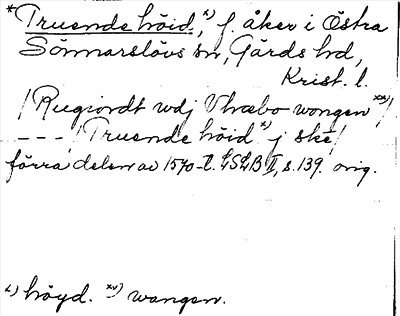 *Truende höid, x) f. åker i Östra
Sönnarslövs sn, Gärds hd,
Krist. l.
/Rugiordt wdj Vhræbo wongen xx)/
---/Truende höid x) j ske/
förra delen av 1570-t. LSLB II, s. 139. orig.
x) höyd. xx) wangen.